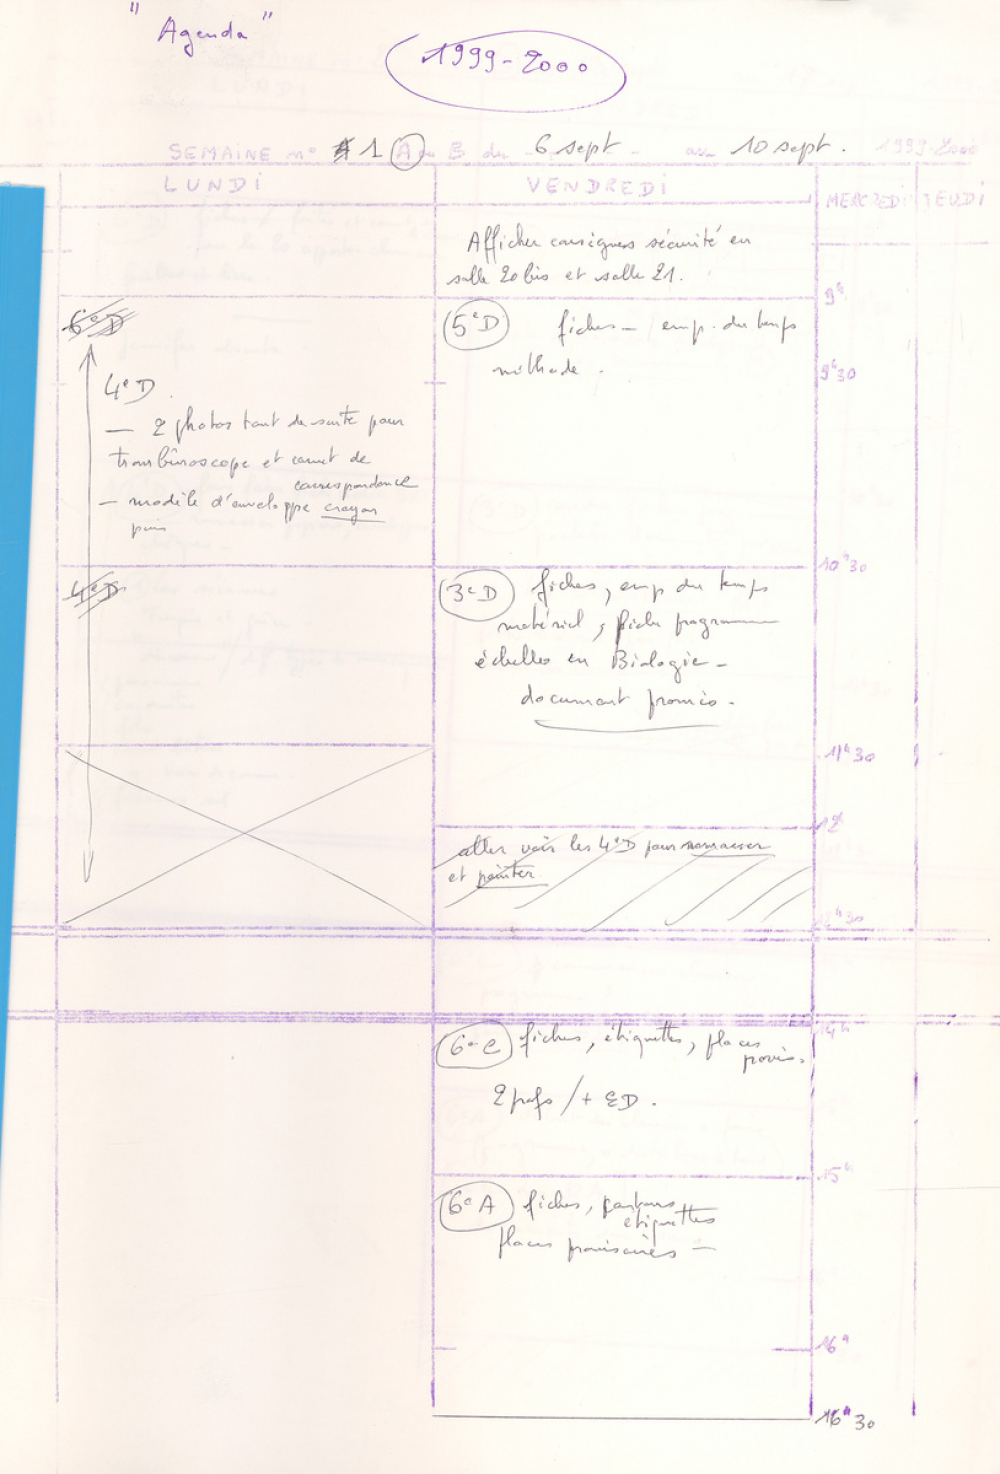 " Agenda "
1999-2000
SEMAINE n° 1 A ou B du 6 sept - au 10 sept. 1999-2000
LUNDI
VENDREDI
MERCREDI
JEUDI
Afficher consignes sécurité en
salle 20 bis et salle 21.
9h
6eD
5eD fiches - emp. du temps
méthode.
9h30
4eD
— 2 photos tout de suite pour
trombinoscope et carnet de
correspondance
— modèle d'enveloppe crayon
10h30
4eD
3eD fiches, emp du temps
matériel, fiche programme
échelles en Biologie -
document promis.
11h30
12h
aller voir les 4eD pour
et pointer
12h30
14h
6e C fiches, étiquettes, places
provis.
2 profs / + ED.
15h
6e A fiches,
étiquettes
places provisoires —
16h
16h30